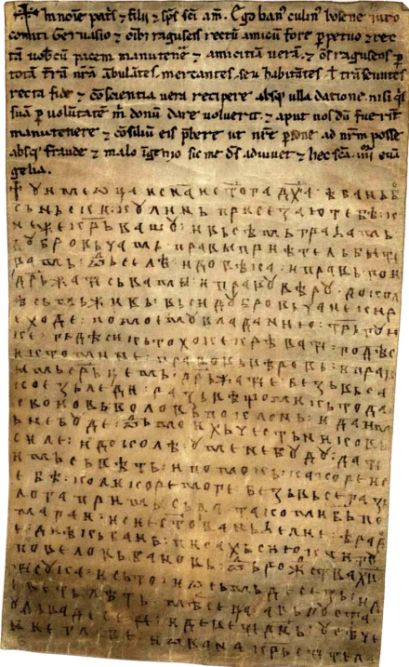 ☩ In noīe patr̄s ⁊ filii ⁊ sp̄s sc̄i am̄. Ego banꝰ culinꝰ bosene iuro
comiti Geruasio ⁊ oīb; raguseis rectū amicū fore ꝑpetuo ⁊ rec
tā uobcū pacem manutenē ⁊ amicitiā uerā. ⁊ os̄ raguseos ꝑ
totā trā m̄ā ābulātes mercantes. seu habitātes ł trāseūtes
recta fide ⁊ cōscientia uera recipere absq; ulla datione. nisi q̄s
suā ꝑ uolūtatē m̄ donū dare uoluerit. ⁊ aput nos dū fuerīt
manutenere ⁊ cōsiliū eis p̄bere ut nr̄e ꝑsone ad nr̄m posse
absq; fraude ⁊ malo īgenio sic me ds̄ adiuuet ⁊ hec scā .iiii. euā
gelia.
✝ У име ѡца и сна и стаго дха · ѣ бань б
осьньски кѹлинь присезаю тебѣ · к
неже крьвашѹ · и вьсѣмь граѣмь д
ѹбровьчамь правы приѣтель быти
вамь · ѿ селѣ и довѣка · и правь гои
дрьжати сь вами · и правѹ вѣрѹ · докол
ѣ сьмь живь · вьси дѹбровьчане кире
ходе · по моемѹ владанию · трьгѹю
ке · гьде си кьто хоке крѣвати · годѣ с
и кто мине · правовь вѣровь · и прав
имь срьцемь · дрьжати е безь вьсак
ое зледи · развѣ що ми кто да с
воиовь воловь поклонь · и да им
ь не бѹде · ѿ моихь чьстьниковь
силе · и доколѣ ѹ мене бѹдѹ · дати
имь сьвѣть · и помокь · како и се
бѣ · коликоре моге · безь вьсега зь
лога примысьла · тако ми бѣ по
магаи · и сие сто еванћелие · ѣ рад
ое диѣкь бань · писахь сию книгѹ
повеловь бановь · ѿ рожства хва ·
тисѹка и сьто · и осьмьдесеть и
деветь лѣть · мѣсеца авьгѹста ·
ѹ дьвадесети и девети днь · ѹсѣчен
ие главе иована крьстителѣ